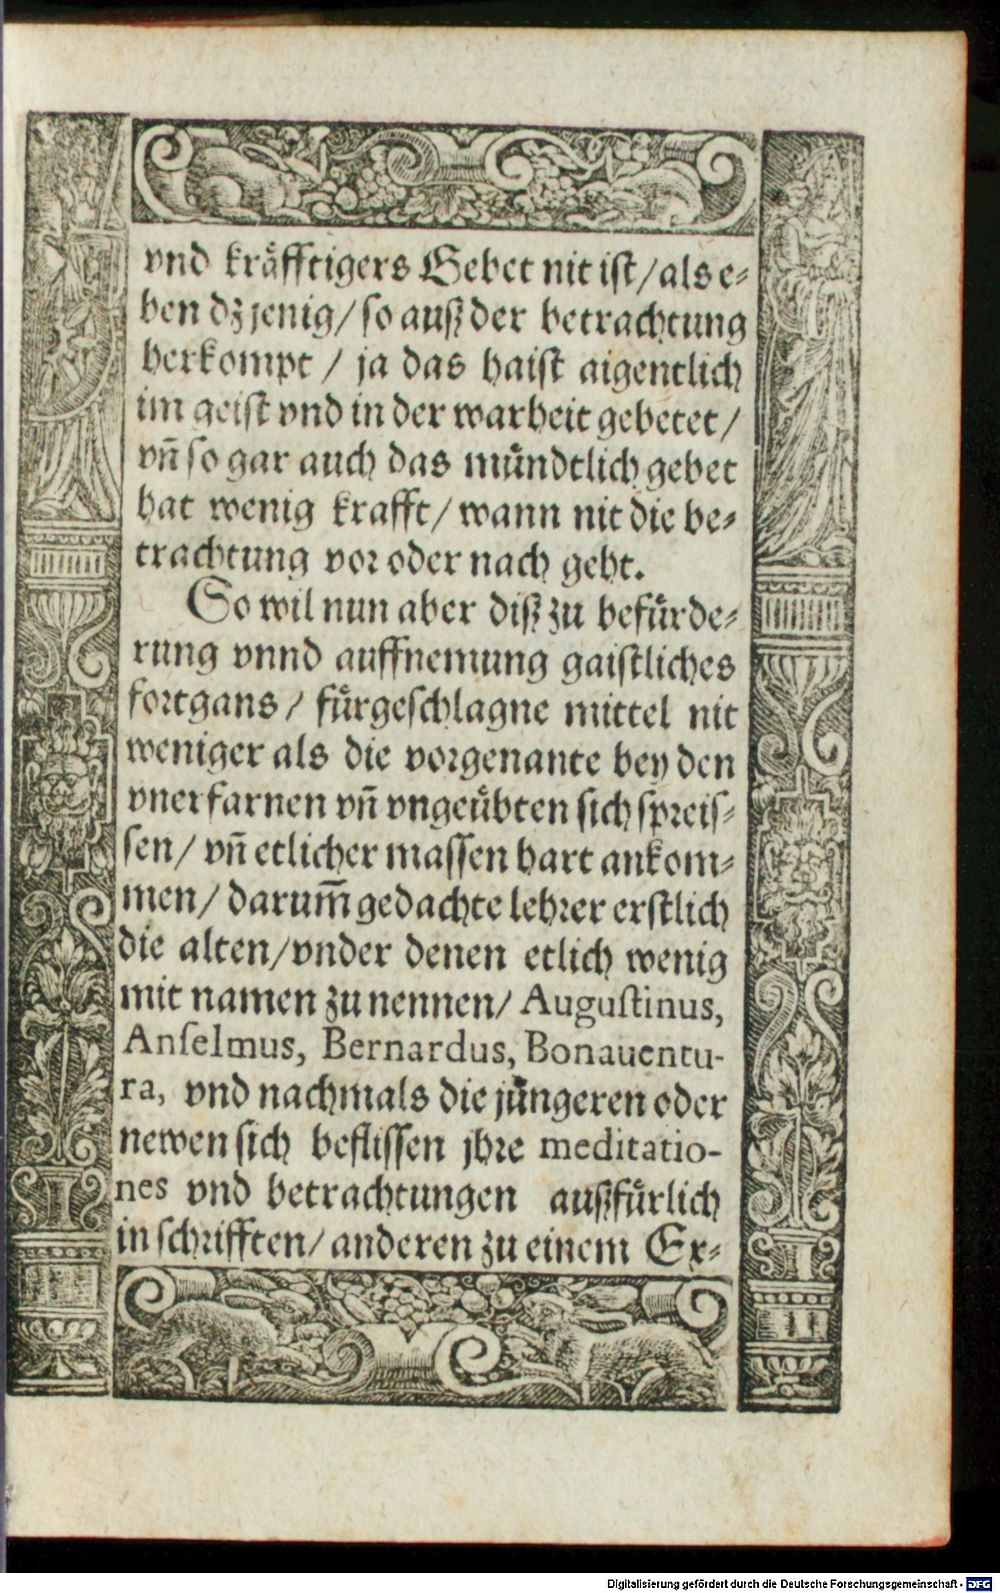 vnd kräfftigers Gebet nit ist/als e⸗
ben dz jenig/so auß der betrachtung
herkompt / ja das haist aigentlich
im geist vnd in der warheit gebetet/
vñ so gar auch das mündtlich gebet
hat wenig krafft/wann nit die be⸗
trachtung vor oder nach geht.
So wil nun aber diß zu befürde⸗
rung vnnd auffnemung gaistliches
fortgans/ fürgeschlagne mittel nit
weniger als die vorgenante bey den
vnerfarnen vñ vngeübten sich spreis⸗
sen/ vñ etlicher massen hart ankom⸗
men/ darum̄ gedachte lehrer erstlich
die alten/vnder denen etlich wenig
mit namen zu nennen/ Augustinus,
Anselmus, Bernardus, Bonauentu-
ra, vnd nachmals die jüngeren oder
newen sich beflissen jhre meditatio-
nes vnd betrachtungen außfürlich
in schrifften/ anderen zu einem Ex⸗
Digitalisierung gefördert durch die Deutsche Forschungsgemeinschaft - DFG